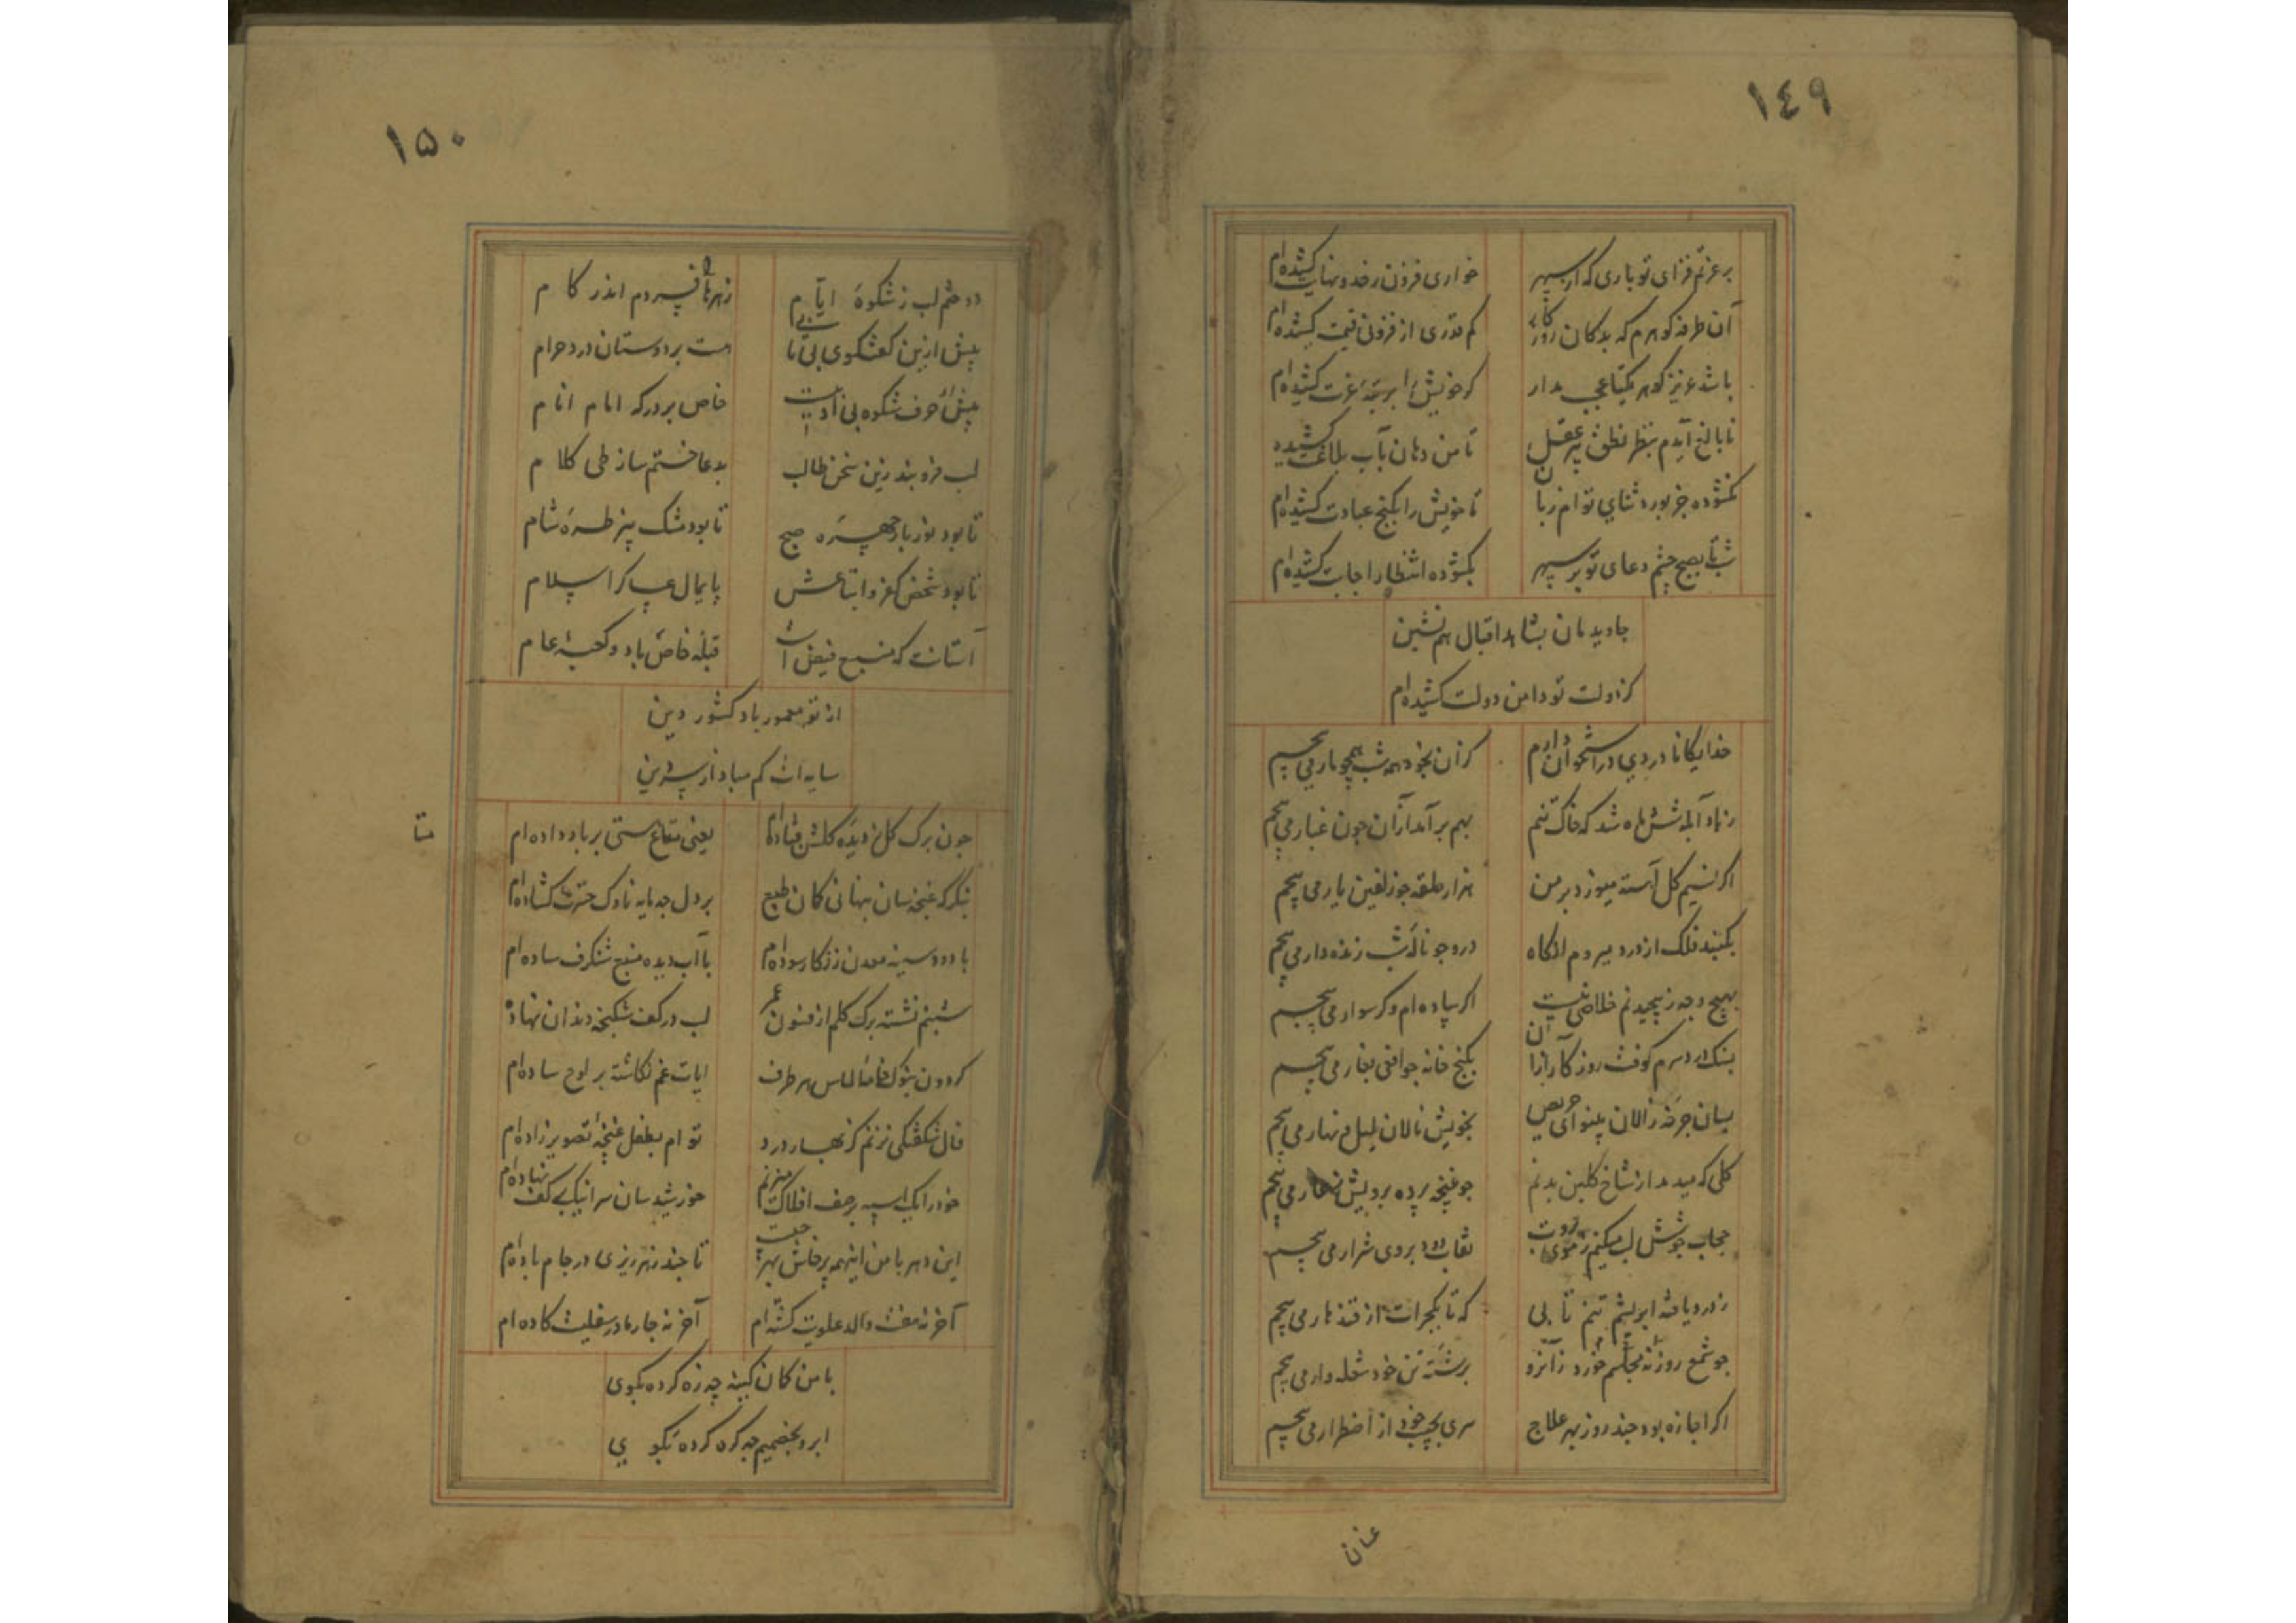 ١٤٩
بر عزتم فزای تو باری که از سپهر خواری فزون ز حد و نهایت کشیده‌ام
آن طرفه کوهرم که بدکان روزگار کم قدری از فزونی قیمت کشیده‌ام
باشد عزیز کوهر یکتا عجب مدار کر خویش را برشتهٔ عزت کشیده‌ام
نابالغ آیدم بنظر نطق پیر عقل تا من دهان بآب بلاغت کشیده‌ام
نکشوده جز بورد ثنای تو ام زبان تا خویش را بکنج عبادت کشیده‌ام
شب تا بصبح چشم دعای تو بر سپهر بکشوده انتظار اجابت کشیده‌ام
جاوید مان بشاهد اقبال هم نشین
کز دولت تو دامن دولت کشیده‌ام
خدایکانا دردی در استخوان دارم کزان بخود همه شب همچو مار می پیچم
زیاد آبله شش ماه شد که خاک تنم بهم بر آمد ازان چون غبار می پیچم
اکر نسیم کل آهسته میوزد بر من هزار حلقه چو زلفین یار می پیچم
بکنبد فلک از درد میروم انکاه درو چو نالهٔ شب زنده دار می پیچم
بهیچ وجه ز پیچیدنم خلاصی نیست اکر پیاده‌ام و کر سوار می پیچم
بسنک درد سرم کوفت روزکار ازان بکنج خانه چو افعی بغار می پیچم
بسان چرخه زالان پینوای حریص بخویش نالان لیل و نهار می پیچم
کلی که میدمد از شاخ کلبن بدنم چو غنچه پرده برویش ز خار می پیچم
حجاب جوشش لب میکنم ز موی بروت نقاب دود بروی شرار می پیچم
ز درد یافته ابریشم تنم تابی که تا بکجرات از قندهار می پیچم
چو شمع روزنه مجلسم خورد زانرو برشتهٔ تن خود شعله وار می پیچم
اکر اجازه بود چند روز بهر علاج سری بجیب خود از اضطرار می پیچم
عنان
١۵٠
دوختم لب ز شکوهٔ ایام زهرها فسردم اندر کام
پیش ازین کفتکوی بی تابی هست بر دوستان درد حرام
پیش ازین حرف شکوه بی ادبیست خاص بر درکه امام انام
لب فرو بند زین سخن طالب بدعا ختم ساز طی کلام
تا بود نور بار چهرهٔ صبح تا بود مشک بیز طرهٔ شام
تا بود شخص کفر و اتباعش پایمال عساکر اسلام
آستانت که منبع فیض است قبلهٔ خاص باد و کعبهٔ عام
از تو معمور باد کشور دین
سایه‌ات کم مباد از سر دین
چون برک کل ز دیدهٔ کلشن فتاده‌ام یعنی متاع هستی بر باد داده‌ام
بنکر که غنچه سان بنهانی کمان طبع بر دل چه مایه ناوک حسرت کشاده‌ام
با دود سینه معدن زنکار سوده‌ام با آب دیده منبع شنکرف ساده‌ام
شبنم نشسته برک کلم از فسون عمر لب در کف شکنجه دندان نهاده‌ام
کردون بنوک خامهٔ الماس هر طرف ایات غم نکاشته بر لوح ساده‌ام
فال شکفتکی نزنم کز بهار درد توام بطفل غنچهٔ تصویر زاده‌ام
خود را یک اسپه بر صف افلاک میزنم خورشید سان سر اینک بر کف نهاده‌ام
این دهر با من اینهمه پرخاش بهر چیست تا چند زهر ریزی در جام باده‌ام
آخر نه هفت والد علویت کشته‌ام آخر نه چار مادر سفلیت کاده‌ام
با من کمان کینه چه زه کرده بکوی
ابرو بخصمیم چه کره کرده بکوی
تا